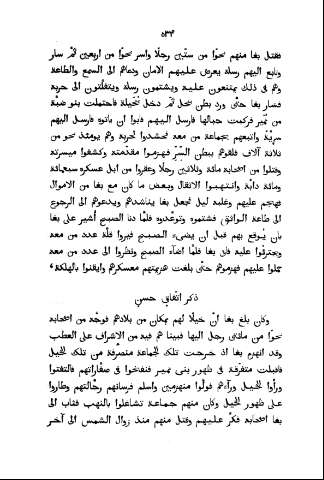 ٥٣٣
فقتل بغا منهم نحوًا من ستّين رجلًا واسر نحوًا من اربعين ثمّ سار
وتابع اليهم رسله يعرض عليهم الامان ودعاهم الى السمع والطاعة
وهم فى ذلك يمتنعون عليه ويشتمون رسله ويتفلّتون الى حربه
فسار بغا حتّى ورد بطن نخل ثمّ دخل نخيلة فاحتملت بنو ضبّة
من نمير فركبت جبالها فارسل اليهم فابوا ان ياتوه فارسل اليهم
سريّة واتبعهم بجماعة من معه فحشدوا لحربه وهم يومئذ نحو من
ثلاثة آلاف فلقوهم ببطن السرّ فهزموا مقدّمته وكشفوا ميسرته
وقتلوا من اصحابه مائة وثلاثين رجلًا وعقروا من ابل عسكره سبعمائة
ومائة دابّة وانتهبوا الاثقال وبعض ما كان مع بغا من الاموال
فهجم عليهم وغلبه ليل فجعل بغا يناشدهم ويدعوهم الى الرجوع
الى طاعة الواثق فشتموه وتوعّدوه فلمّا دنا الصبح أُشير على بغا
بان يُوقع بهم قبل ان يضىء الصبح فيروا قلّة من معه
ويجترئوا عليه فابى بغا فلمّا اضآء الصبح ونظروا الى عدد من معه
حملوا عليهم فهزموهم حتّى بلغت هزيمتهم معسكرهم وايقنوا بالهلكة،
ذكر اتّفاق حسن
وكان بلغ بغا انّ خيلًا لهم بمكان من بلادهم فوجّه من اصحابه
نحوًا من مائتى رجل اليها فبينا هم فيه من الاشراف على العطب
وقد انهزم بغا اذ خرجت تلك الجماعة منصرفة من تلك الخيل
فاقبلت متفرّقة فى ظهور بنى نمير فنفخوا فى صفّاراتهم فالتفتوا
ورأوا الخيل ورآءهم فولّوا منهزمين واسلم فرسانهم رجّالتهم وطاروا
على ظهور الخيل وكان منهم جماعة تشاغلوا بالنهب فثاب الى
بغا اصحابه فكرّ عليهم وقتل منهم منذ زوال الشمس الى آخر